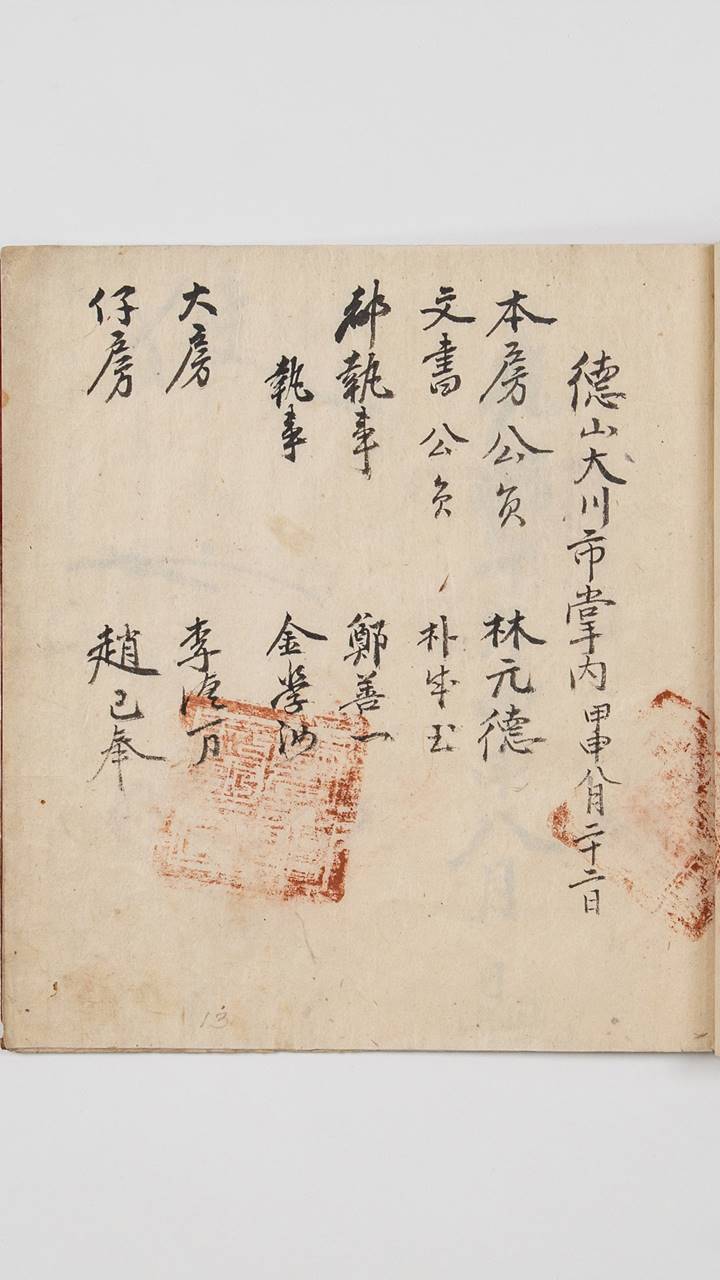 德山大川市掌內 甲申八月二十二日
本房公員 林元德
文書公員 朴成玉
都執事 鄭善一
執事 金學
大房 李 万
仔房 趙己奉
13